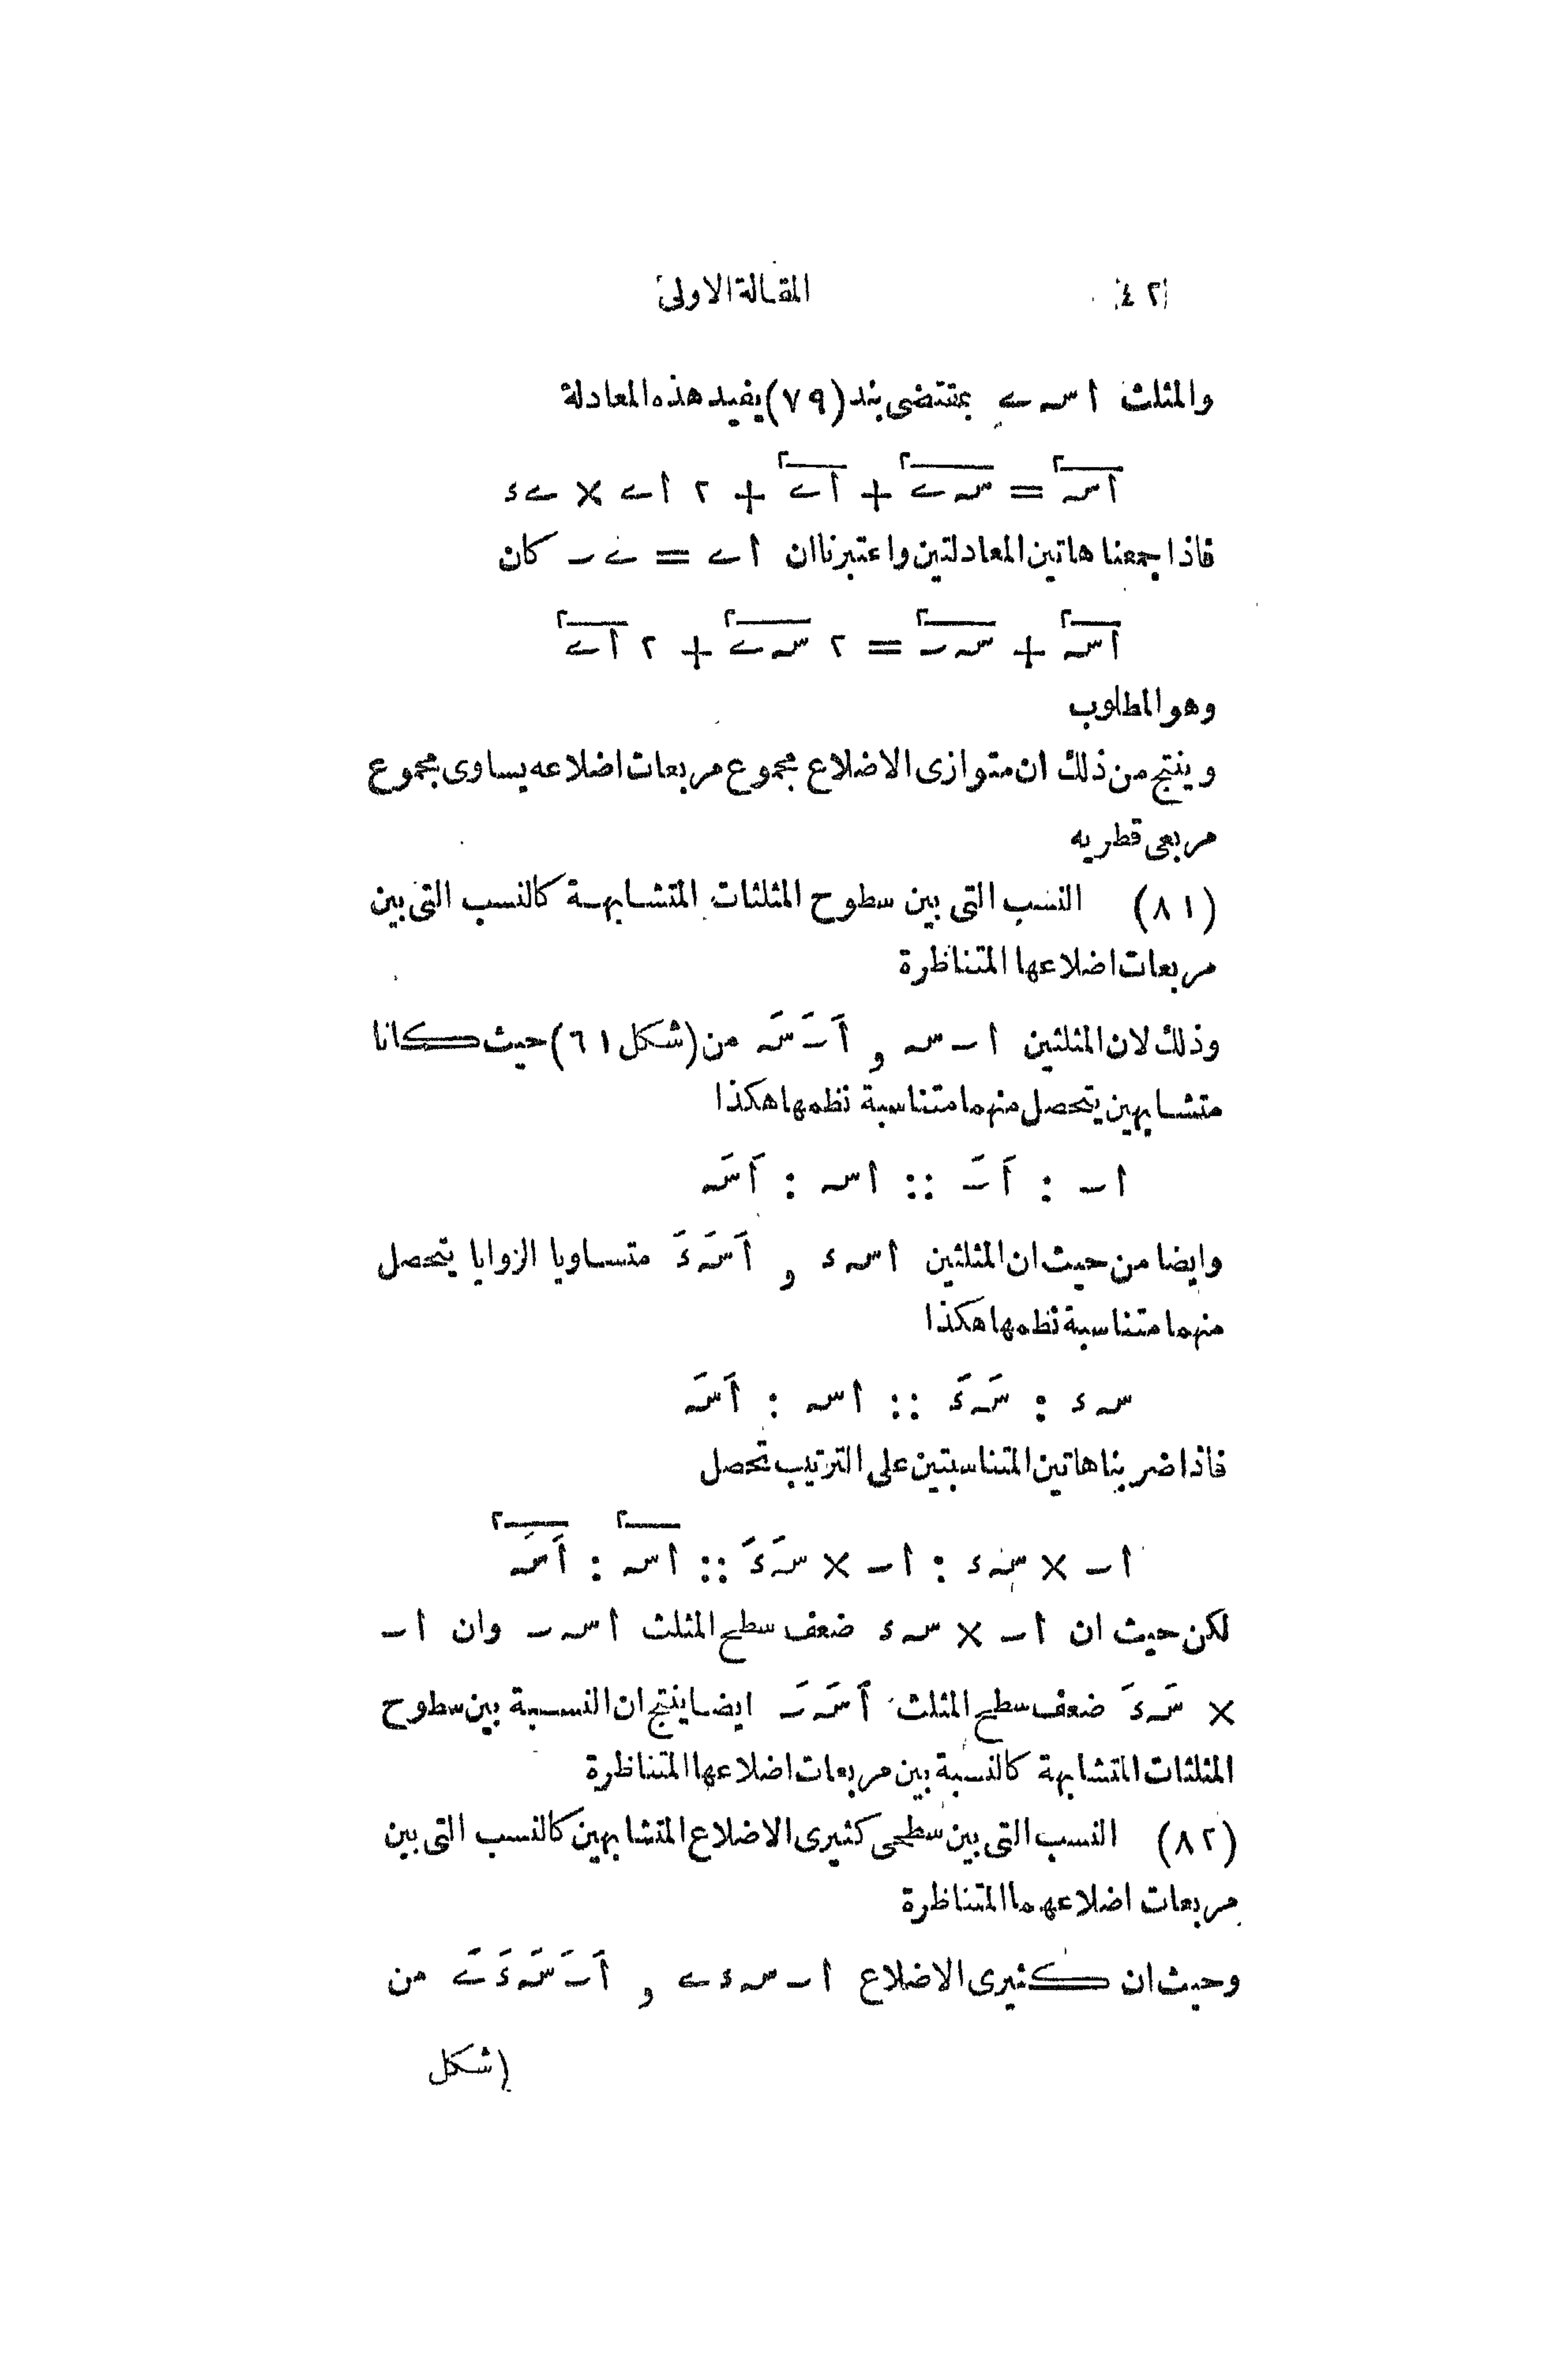 ٤٢ المقالة الاولى
والمثلث اسـے بمقتضى بند (٧٩) يفيد هذه المعادلة
اسـ٢ = سـے٢ + اے٢ + ٢ اے × ےء
فاذا جمعنا هاتين المعادلتين واعتبرنا ان اے = ےـ كان
اسـ٢ + سـٮ٢ = ٢ سـے٢ + ٢ اے٢
وهو المطلوب
وينتج من ذلك ان متوازى الاضلاع مجموع مربعات اضلاعه يساوى مجموع
مربعى قطريه
(٨١) النسب التى بين سطوح المثلثات المتشابهة كالنسب التى بين
مربعات اضلاعها المتناظرة
وذلك لان المثلثين اٮسـ و اَٮَسَـ من (شكل ٦١) حيث كانا
متشابهين يتحصل منهما متناسبة نظمها هكذا
اٮ : اَٮَ :: اسـ : اَسَـ
وايضا من حيث ان المثلثين اسـء و اَسَـءَ متساويا الزوايا يتحصل
منهما متناسبة نظمها هكذا
سـء : سَـءَ :: اسـ : اَسَـ
فاذا ضربنا هاتين المتناسبتين على الترتيب تحصل
اٮ × سـء : اٮ × سَـءَ :: اسـ٢ : اَسَـ٢
لكن حيث ان اٮ × سـء ضعف سطح المثلث اسـٮ وان اٮ
× سَـءَ ضعف سطح المثلث اَسَـٮَ ايضا ينتج ان النسبة بين سطوح
المثلثات المتشابهة كالنسبة بين مربعات اضلاعها المتناظرة
(٨٢) النسب التى بين سطحى كثيرى الاضلاع المتشابهين كالنسب التى بين
مربعات اضلاعهما المتناظرة
وحيث ان كثيرى الاضلاع اٮسـءے و اَٮَسَـءَےَ من
(شكل